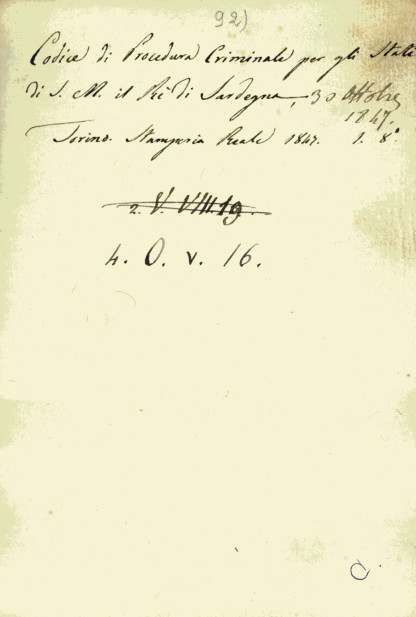 92)
Codice di Procedura Criminale per gli Stati
di S. M. il Re di Sardegna, 30 Ottobre
1847.
Torino. Stamperia Reale 1847. 1. 8°
2. V. VIII.19.
4. O. v. 16.
C.